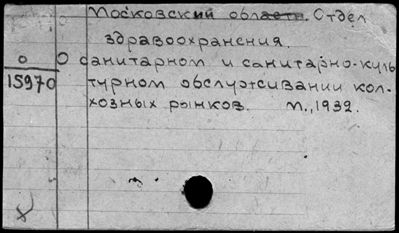 Московский област. Отдел
здравоохранения.
О санитарном и санитарно-куль
турном обслуживании кол-
хозных рынков. М., 1932.
0
15970